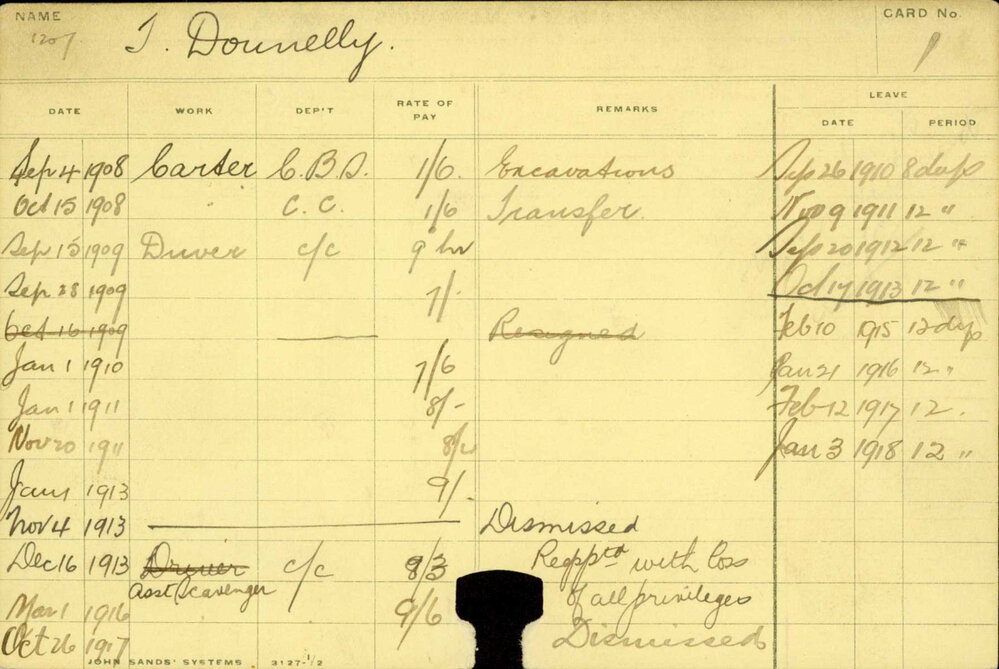 NAME
1207 T. Donnelly.
CARD No.
1
DATE WORK DEP'T RATE OF PAY REMARKS
LEAVE
DATE PERIOD
Sep 4 1908 Carter C.B.D. 1/6. Excavations Sep 26 1910 8 days
Oct 15 1908 " C.C. 1/6 Transfer. Nov 9 1911 12 "
Sep 15 1909 Driver c/c 9 hr Sep 20 1912 12 "
Sep 28 1909 7/- Oct 17 1913 12 "
Oct 16 1909 Resigned Feb 10 1915 12 days
Jan 1 1910 7/6 Jan 21 1916 12 "
Jan 1 1911 8/- Feb 12 1917 12 .
Nov 20 1911 Jan 3 1918 12 "
Jan 1 1913 9/-
Nov 4 1913 Dismissed
Dec 16 1913 Driver c/c 8/3 Reapptd with loss
asst Scavenger of all privileges
Mar 1 1916 9/6
Oct 26 1917 Dismissed
JOHN SANDS' SYSTEMS 3127-1/2